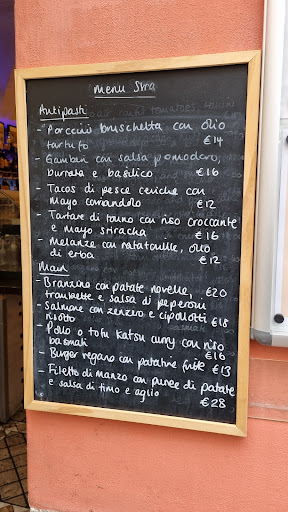 menu Sera
Antipasti
- Porcini bruschetta con olio
tartufo €14
- Gamberi con salsa pomodoro,
burrata e basilico €16
- Tacos di pesce ceviche con
mayo coriandolo €12
- Tartare di tonno con riso croccante
e mayo sriracha €16
- melanzane con ratatouille, olio
di erba €12
Main
- Branzino con patate novelle, €20
trombette e salsa di peperoni
- Salmone con zenzero e cipollotti
risotto €18
- Pollo o tofu katsu curry con riso
basmati €16
- Burger vegano con patatine fritte €13
- Filetto di manzo con puree di patate
e salsa di timo e aglio
€28